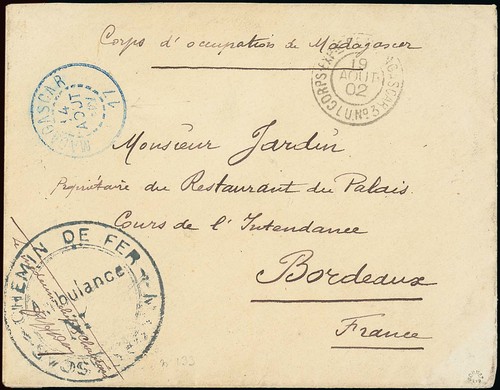 Corps d'occupation de Madagascar
MADAGASCAR
14
AOUT
17
CORPS EXP
19
AOUT
02
Monsieur Jardin
Propriétaire du Restaurant du Palais.
Cours de l'Intendance
Bordeaux
France
CHEMIN DE FER
bulance